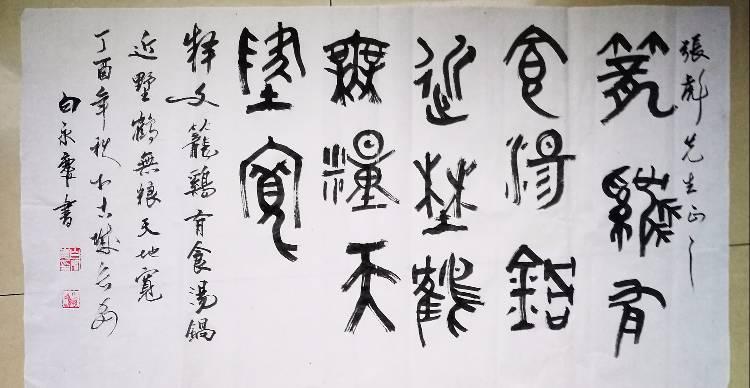 張彪先生正之
籠雞有
食湯鍋
近墅鶴
無糧天
地寬
释文籠鷄有食湯鍋
近墅鶴無粮天地寬
丁酉年秋於古城
白永書